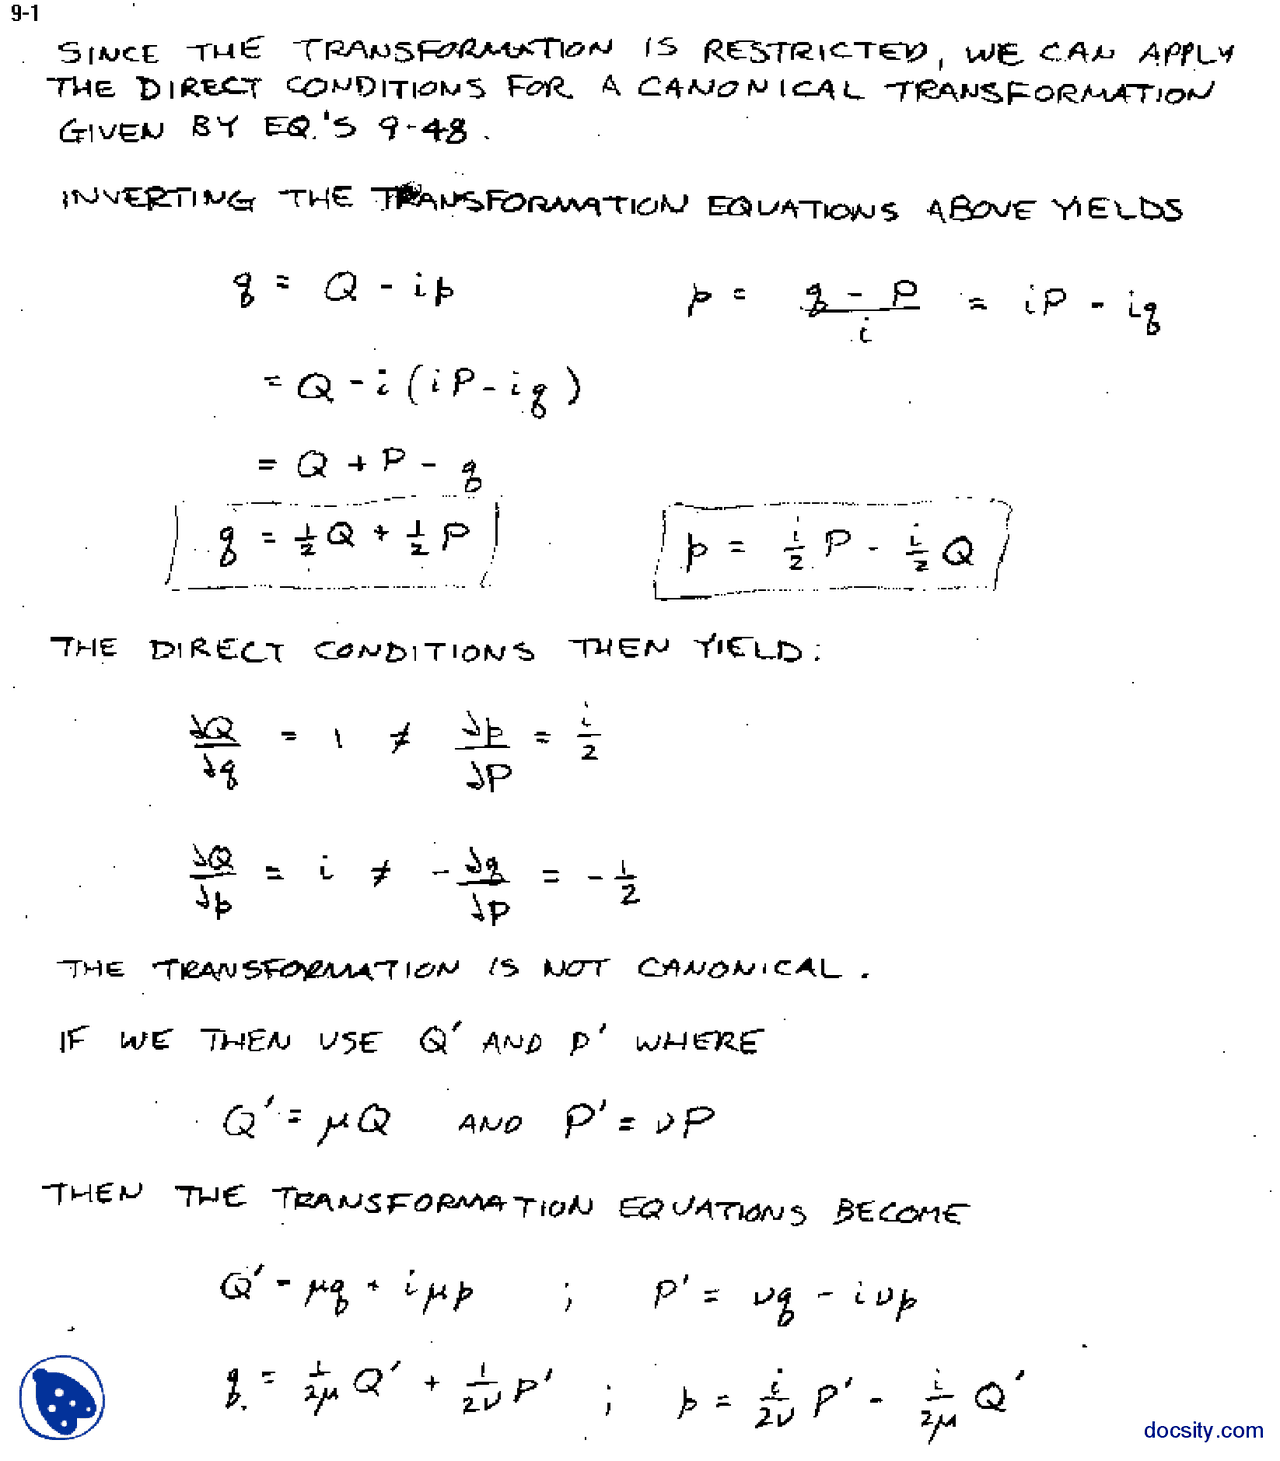 9-1
SINCE THE TRANSFORMATION IS RESTRICTED, WE CAN APPLY
THE DIRECT CONDITIONS FOR A CANONICAL TRANSFORMATION
GIVEN BY EQ.'S 9-48.
INVERTING THE TRANSFORMATION EQUATIONS ABOVE YIELDS
q = Q - ip p = (q - P)/i = iP - iq
= Q - i(iP - iq)
= Q + P - q
q = 1/2 Q + 1/2 P p = i/2 P - i/2 Q
THE DIRECT CONDITIONS THEN YIELD:
∂Q/∂q = 1 ≠ ∂p/∂P = i/2
∂Q/∂p = i ≠ -∂q/∂P = -1/2
THE TRANSFORMATION IS NOT CANONICAL.
IF WE THEN USE Q' AND P' WHERE
Q' = μQ AND P' = νP
THEN THE TRANSFORMATION EQUATIONS BECOME
Q' = μq + iμp ; P' = νq - iνp
q = 1/2μ Q' + 1/2ν P' ; p = i/2ν P' - i/2μ Q'
docsity.com